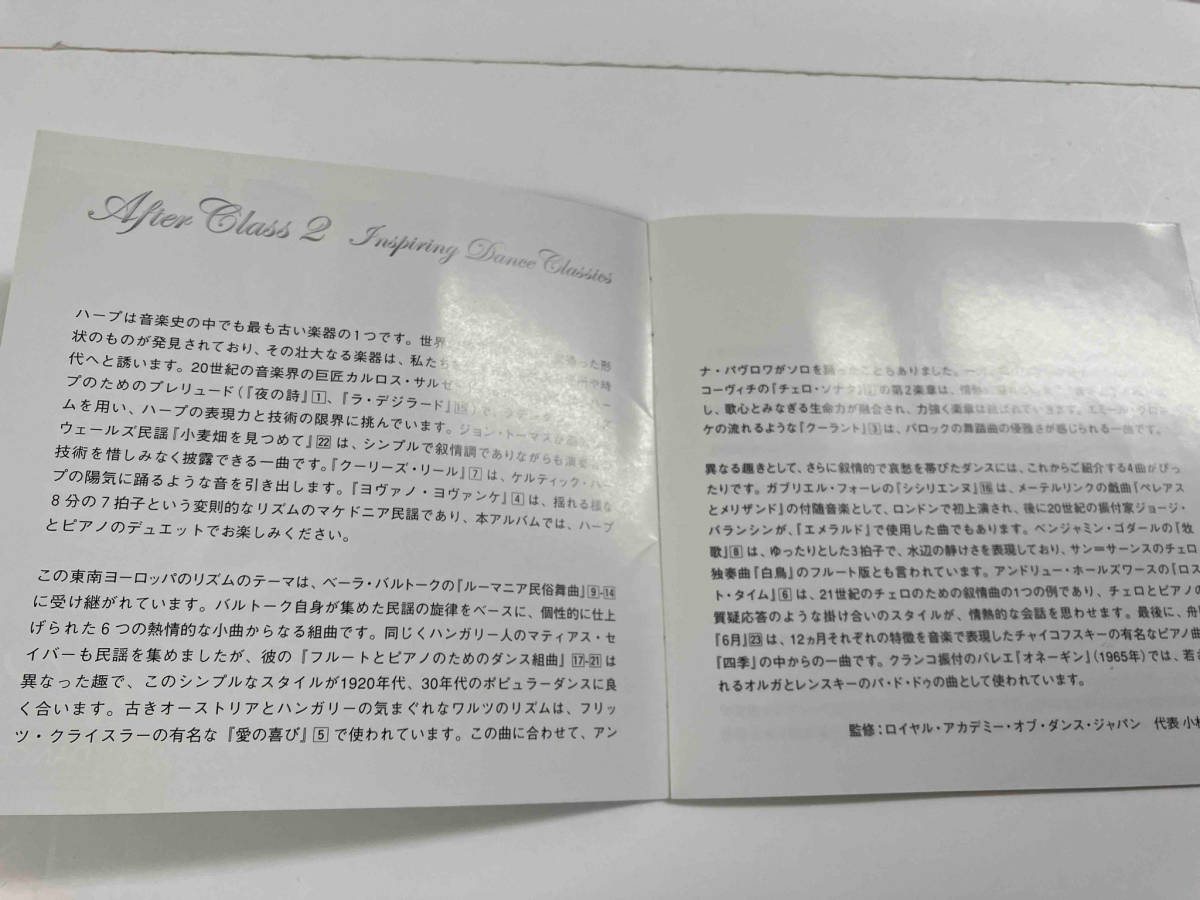 After Class 2 Inspiring Dance Classics
ハープは音楽史の中でも最も古い楽器の1つです。世界 った形
状のものが発見されており、その壮大なる楽器は、私たち や時
代へと誘います。20世紀の音楽界の巨匠カルロス・サルゼ ハー
プのためのプレリュード(『夜の詩』1、『ラ・デジラード』15)で、 ズ
ムを用い、ハープの表現力と技術の限界に挑んでいます。ジョン・トーマス
ウェールズ民謡『小麦畑を見つめて』22は、シンプルで叙情調でありながらも演奏
技術を惜しみなく披露できる一曲です。『クーリーズ・リール』7は、ケルティック・ハー
プの陽気に踊るような音を引き出します。『ヨヴァノ・ヨヴァンケ』4は、揺れる様な
8分の7拍子という変則的なリズムのマケドニア民謡であり、本アルバムでは、ハープ
とピアノのデュエットでお楽しみください。
この東南ヨーロッパのリズムのテーマは、ベーラ・バルトークの『ルーマニア民俗舞曲』9-14
に受け継がれています。バルトーク自身が集めた民謡の旋律をベースに、個性的に仕上
げられた6つの熱情的な小曲からなる組曲です。同じくハンガリー人のマティアス・セ
イバーも民謡を集めましたが、彼の『フルートとピアノのためのダンス組曲』17-21は
異なった趣で、このシンプルなスタイルが1920年代、30年代のポピュラーダンスに良
く合います。古きオーストリアとハンガリーの気まぐれなワルツのリズムは、フリッ
ツ・クライスラーの有名な『愛の喜び』5で使われています。この曲に合わせて、アン
ナ・パヴロワがソロを踊ったこともありました。
コーヴィチの『チェロ・ソナタ』 の第2楽章は、情熱
し、歌心とみなぎる生命力が融合され、力強く楽章は結ばれていきます。エミール・
ケの流れるような『クーラント』3は、バロックの舞踏曲の優雅さが感じられる一曲です。
異なる趣きとして、さらに叙情的で哀愁を帯びたダンスには、これからご紹介する4曲がぴっ
たりです。ガブリエル・フォーレの『シシリエンヌ』16は、メーテルリンクの戯曲『ペレアス
とメリザンド』の付随音楽として、ロンドンで初上演され、後に20世紀の振付家ジョージ・
バランシンが、『エメラルド』で使用した曲でもあります。ベンジャミン・ゴダールの『牧
歌』8は、ゆったりとした3拍子で、水辺の静けさを表現しており、サン＝サーンスのチェロ
独奏曲『白鳥』のフルート版とも言われています。アンドリュー・ホールズワースの『ロス
ト・タイム』6は、21世紀のチェロのための叙情曲の1つの例であり、チェロとピアノの
質疑応答のような掛け合いのスタイルが、情熱的な会話を思わせます。最後に、舟
『6月』23は、12ヵ月それぞれの特徴を音楽で表現したチャイコフスキーの有名なピアノ曲
『四季』の中からの一曲です。クランコ振付のバレエ『オネーギン』(1965年)では、若き
れるオルガとレンスキーのパ・ド・ドゥの曲として使われています。
監修：ロイヤル・アカデミー・オブ・ダンス・ジャパン 代表 小